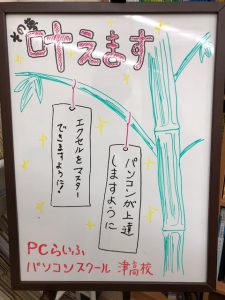 その夢
叶えます
パソコンが上達
しますように
エクセルをマスター
できますように!
PCらいふ
パソコンスクール 津高校